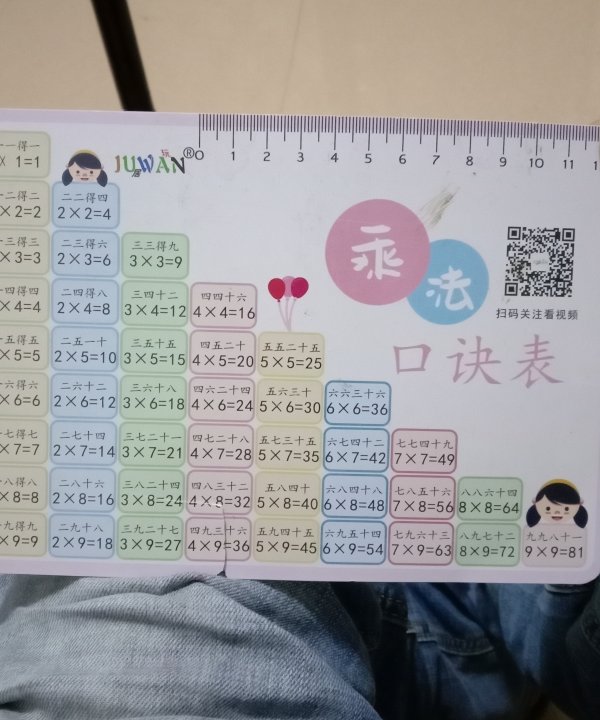 JUWAN®
0 1 2 3 4 5 6 7 8 9 10 11
乘法
口诀表
扫码关注看视频
一得一
× 1=1
二得二 二二得四
×2=2 2×2=4
三得三 二三得六 三三得九
×3=3 2×3=6 3×3=9
四得四 二四得八 三四十二 四四十六
×4=4 2×4=8 3×4=12 4×4=16
五得五 二五一十 三五十五 四五二十 五五二十五
×5=5 2×5=10 3×5=15 4×5=20 5×5=25
六得六 二六十二 三六十八 四六二十四 五六三十 六六三十六
×6=6 2×6=12 3×6=18 4×6=24 5×6=30 6×6=36
七得七 二七十四 三七二十一 四七二十八 五七三十五 六七四十二 七七四十九
×7=7 2×7=14 3×7=21 4×7=28 5×7=35 6×7=42 7×7=49
八得八 二八十六 三八二十四 四八三十二 五八四十 六八四十八 七八五十六 八八六十四
×8=8 2×8=16 3×8=24 4×8=32 5×8=40 6×8=48 7×8=56 8×8=64
九得九 二九十八 三九二十七 四九三十六 五九四十五 六九五十四 七九六十三 八九七十二 九九八十一
×9=9 2×9=18 3×9=27 4×9=36 5×9=45 6×9=54 7×9=63 8×9=72 9×9=81